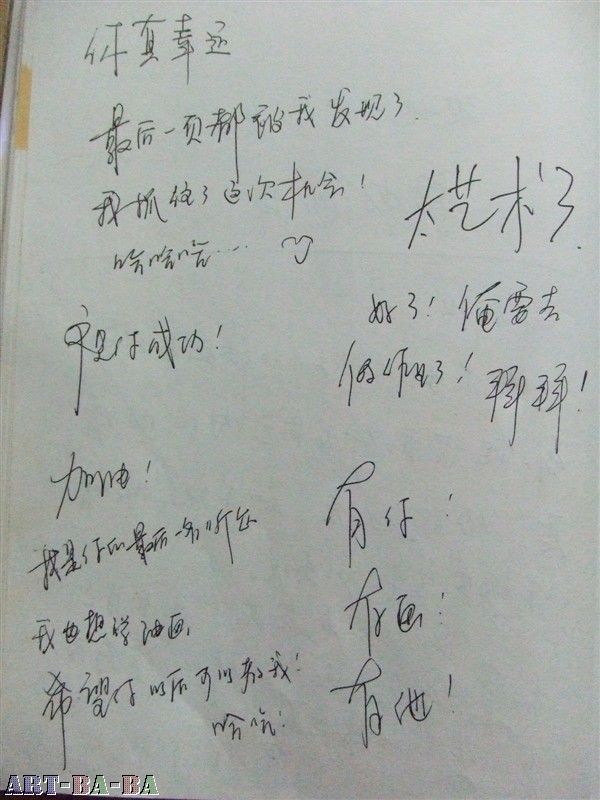 你真幸运
最后一页都被我发现了
我抓住了这次机会！
哈哈哈……
太艺术了
祝你成功！
好了！俺要去
做作业了！拜拜！
加油！
我是你的最后一名
我也想学油画，
希望你以后可以教我！
哈哈！
有你！
有画！
有他！
ART-BA-BA